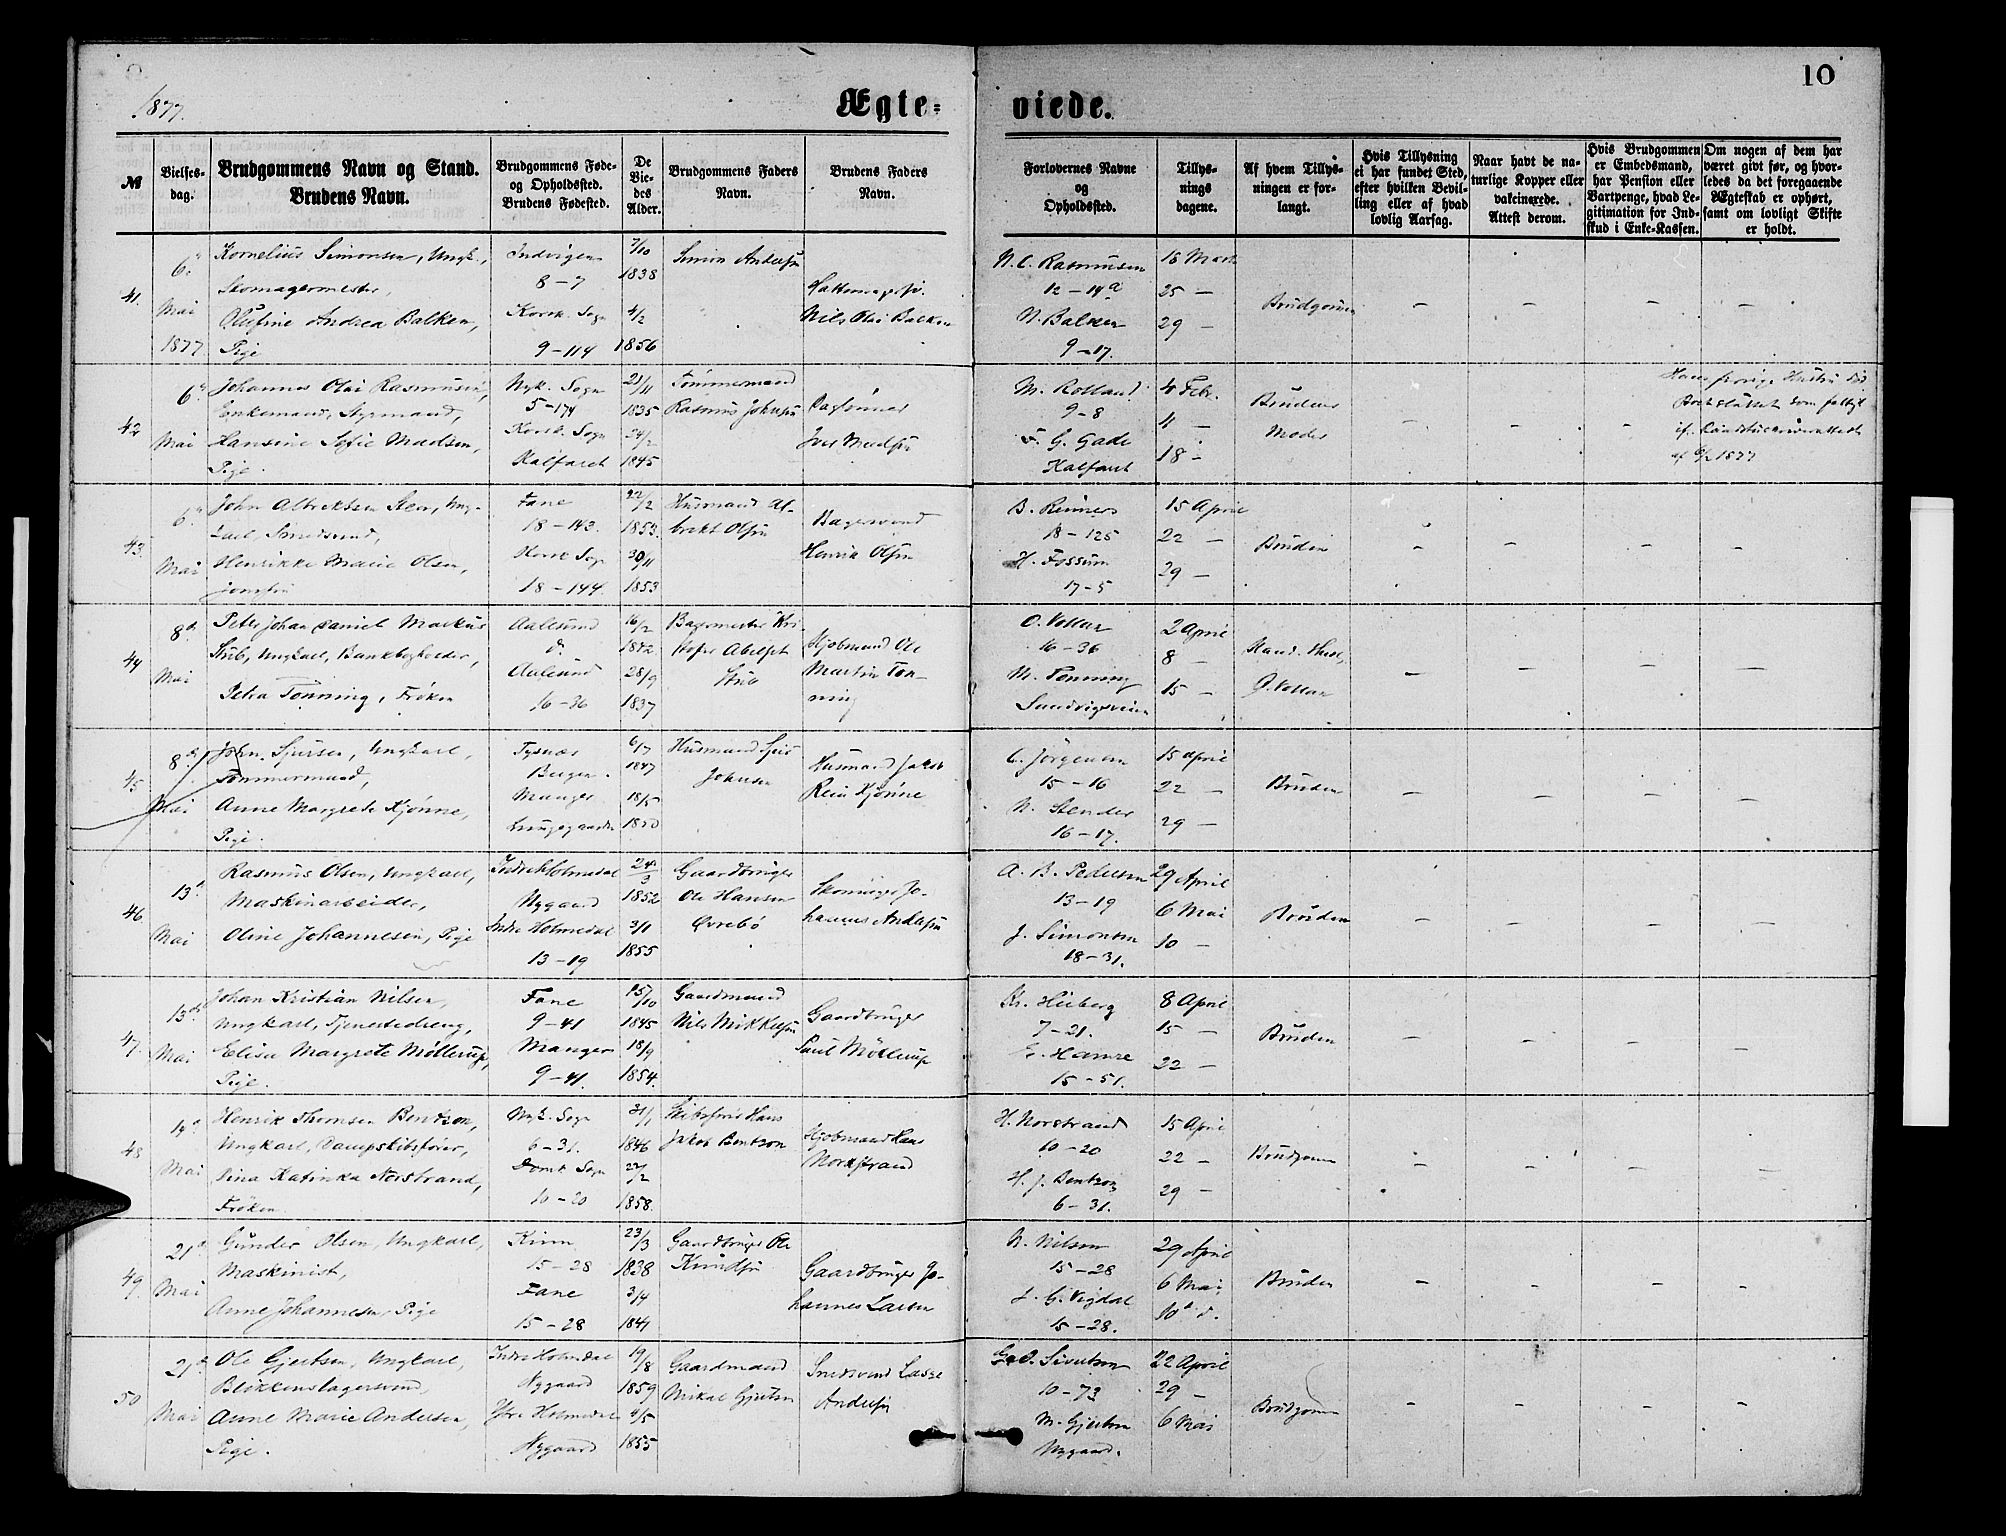 1877.
Ægte-
viede.
10
№
Vielses-
dag.
Brudgommens Navn og Stand.
Brudens Navn.
Brudgommens Føde-
og Opholdssted.
Brudens Fødested.
De
Vie-
des
Alder.
Brudgommens Faders
Navn.
Brudens Faders
Navn.
Forlovernes Navne
og
Opholdssted.
Tillys-
nings
dagene.
Af hvem Tillys-
ningen er for-
langt.
Hvis Tillysning
ei har fundet Sted,
efter hvilken Bevil-
ling eller af hvad
lovlig Aarsag.
Naar havt de na-
turlige Kopper eller
vakcinerede.
Attest derom.
Hvis Brudgommen
er Embedsmand,
har Pension eller
Vartpenge, hvad Le-
gitimation for Ind-
skud i Enke-Kassen.
Om nogen af dem har
været givt før, og hvor-
ledes da det foregaaende
Ægteskab er ophørt,
samt om lovligt Skifte
er holdt.
41.
6
Mai
1877
Kornelius Simonsen, Ungk.,
Skomagermester,
Olufine Andrea Balken,
Pige
Indvigen
8-7
Korsk. Sogn
9-114
7/10
1838
4/2
1856
Simon Andersen
Nils Olai Balken
N. C. Rasmussen
12-14a
N. Balken
9-17.
18 Marts
25 -
29 -
Brudgommen
42
6
Mai
Johannes Olai Rasmussen,
Enkemand, Styrmand,
Hansine Sofie Madsen,
Pige.
Nyk. Sogn
5-174
Korsk. Sogn
Kalfaret
21/11
1835
24/2
1845
Tømmermand
Rasmus Johnsen
Iver Madsen
M. Rolland
9-8
F. G. Gade
Kalfaret
4 Febr.
11 -
18 -
Brudens
Moder
Hans forrige Hustru død
43.
6
Mai
John Albrektsen Steen, Ung-
karl, Smedsvend,
Henrikke Marie Olsen,
Fane
18-143.
Korsk Sogn
18-144.
22/2
1853.
30/11
1853
Husmand Al-
brekt Olsen
Bagersvend
Henrik Olsen
B. Reimers
18-125
H. Fossum
17-5
15 April
22 -
29 -
Bruden
44
8de
Mai
Peter Johan Daniel Markus
Stub, Ungkarl, Bankbogholder,
Petra Tønning, Frøken
Aalesund
do
Aalesund
16-36
16/2
1842
28/9
1837
Bagermester Kri-
stofer Abelset
Stub
Kjøbmand Ole
Martin Tøn-
ning
O. Vollan
16-36
M. Tønning
Sandvigsveien
2 April
8 -
15 -
Kand. theol.
O. Vollan
45
8de
Mai
John Sjursen, Ungkarl,
Tømmermand,
Anne Margrete Kjønne,
Pige.
Tysnæs
Bergen.
Manger
6/7
1847
18/5
1850
Husmand Sjur
Johnsen
Husmand Jakob
Rein Kjønne
C. Jørgensen
15-16
N. Stender
16-17.
15 April
22 -
29 -
Bruden
46.
13de
Mai
Rasmus Olsen, Ungkarl,
Maskinarbeider,
Oline Johannesen, Pige
Indre Holmedal
Nygaard
Indre Holmedal
13-19
24/3
1852
3/1
1855
Gaardbruger
Ole Hansen
Øvrebø
Skomager Jo-
hannes Andersen
A. B. Pedersen
13-19
J. Simonsen
18-31.
29 April
6 Mai
10 -
Bruden
47.
13de
Mai
Johan Kristian Nilsen,
Ungkarl, Tjenestedreng,
Elisa Margrete Møllerup,
Pige.
Fane
9-41
Manger
9-41.
15/10
1845
18/9
1854.
Gaardmand
Nils Mikkelsen
Gaardbruger
Paul Møllerup
Kr. Heiberg
7-21.
G. Hamre
15-51.
8 April
15 -
22 -
Bruden
48
14de
Mai
Henrik Thomsen Bentzon,
Ungkarl, Dampskibsfører,
Dina Katinka Norstrand,
Frøken
Nyk. Sogn
6-31.
Domk. Sogn
10-20
31/1
1846
22/2
1858.
Skibsfører Hans
Jakob Bentzon
Kjøbmand Hans
Norstrand
H. Norstrand
10-20
H. J. Bentzon
6-31.
15 April
22 -
29 -
Brudgommen
49.
21de
Mai
Gunder Olsen, Ungkarl,
Maskinist,
Anne Johannesen, Pige
Kinn
15-28
Fane
15-28
23/3
1838
3/4
1841
Gaardbruger Ole
Knudsen
Gaardbruger Jo-
hannes Larsen
N. Nilsen
15-28
J. G. Vigdal
15-28.
29 April
6 Mai
10de d.
Bruden
50
21de
Mai
Ole Gjertsen, Ungkarl,
Blikkenslagersvend,
Anne Marie Andersen,
Pige.
Indre Holmedal
Nygaard
Ytre Holmedal
Nygaard
19/8
1859
4/5
1855
Gaardmand
Mikal Gjertsen
Smedsvend Lasse
Andersen
G. S. Sivertsen
10-73
M. Gjertsen
Nygaard.
22 April
29 -
6 Mai
Brudgommen